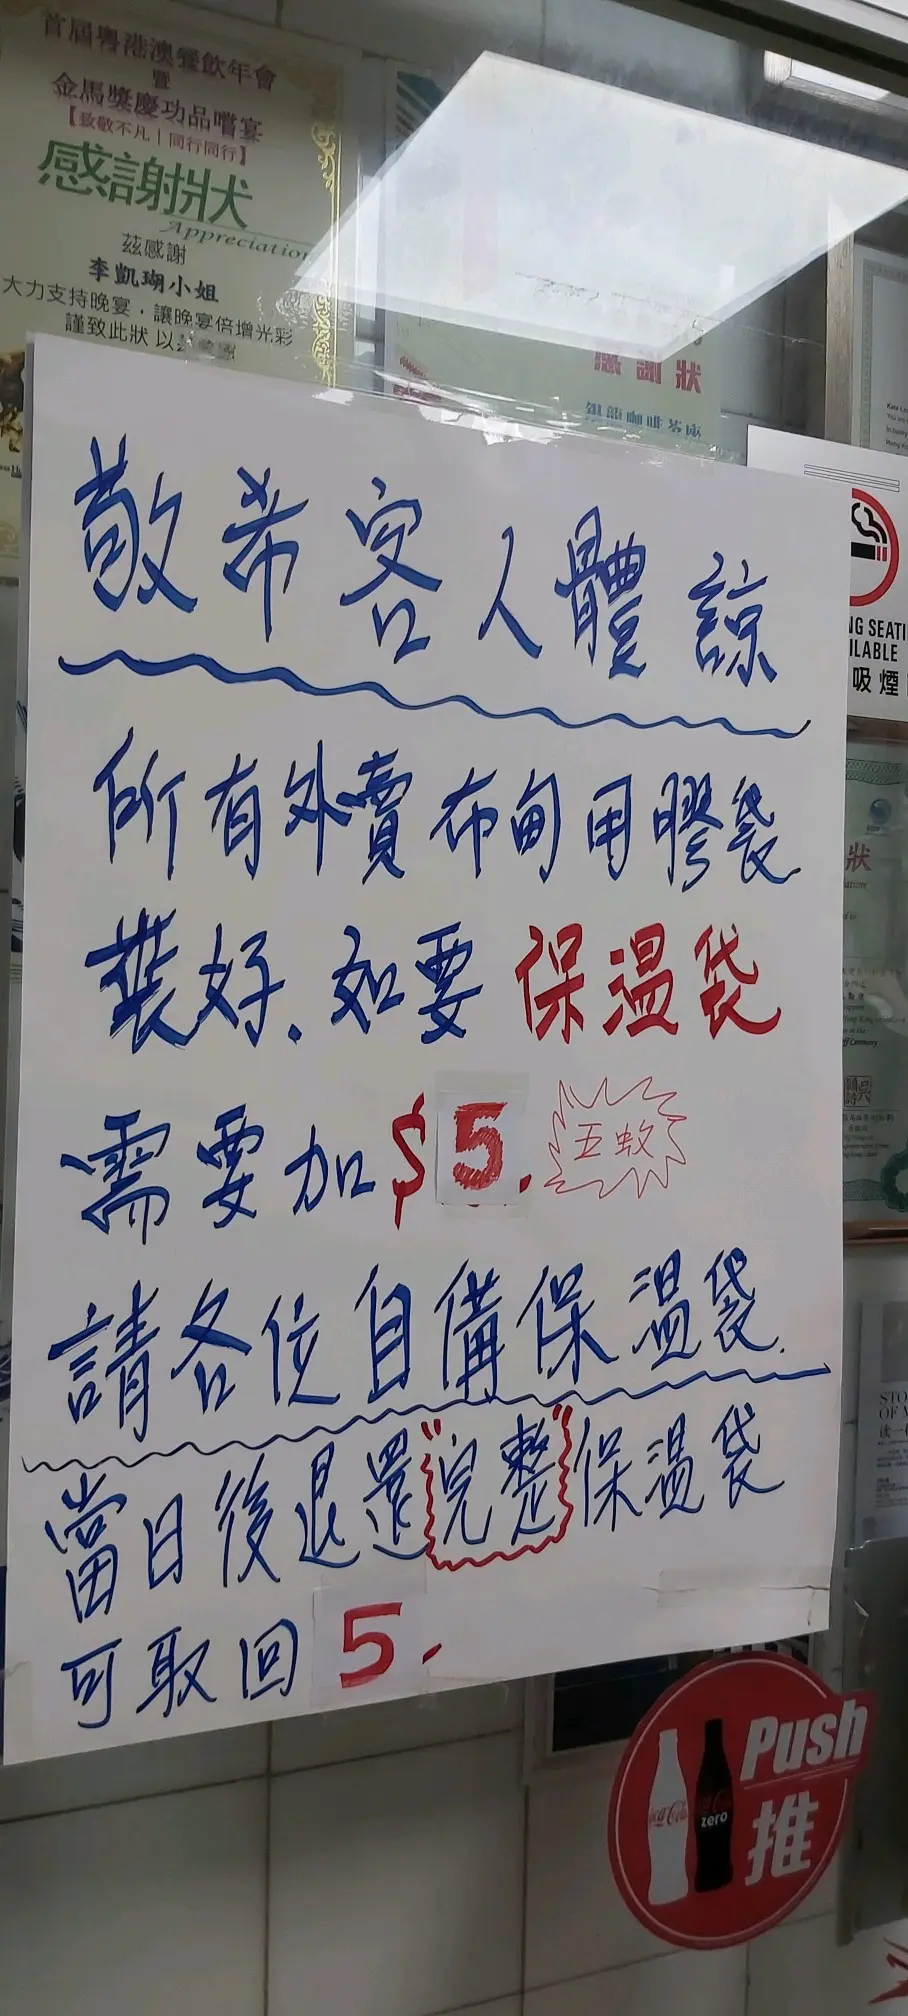 首屆粵港澳餐飲年會
暨
金馬獎慶功品嚐宴
【致敬不凡｜同行同行】
感謝狀
Appreciation
茲感謝
李凱瑚小姐
大力支持晚宴，讓晚宴倍增光彩
謹致此狀 以
感謝狀
銀龍咖啡茶座
NG SEATI
ILABLE
吸煙
狀
敬希客人體諒
所有外賣布甸用膠袋
裝好.如要保溫袋
需要加$5.五蚊
請各位自備保溫袋.
當日後退還"完整"保溫袋
可取回5.
STO
OF
读一
Push
推
Coca-Cola
Coca-Cola
zero